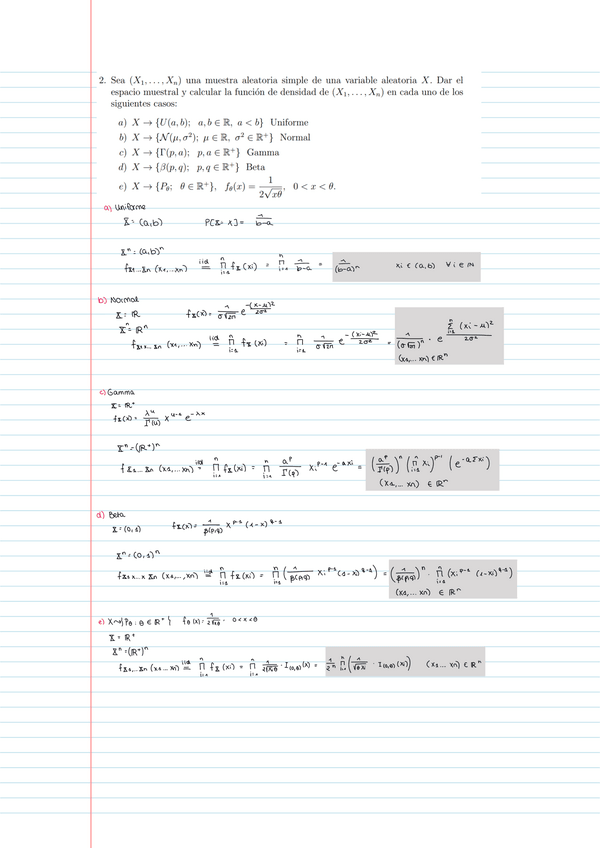 2. Sea (X₁, . . . , Xₙ) una muestra aleatoria simple de una variable aleatoria X. Dar el
espacio muestral y calcular la función de densidad de (X₁, . . . , Xₙ) en cada uno de los
siguientes casos:
a) X → {U(a, b); a, b ∈ ℝ, a < b} Uniforme
b) X → {N(μ, σ²); μ ∈ ℝ, σ² ∈ ℝ⁺} Normal
c) X → {Γ(p, a); p, a ∈ ℝ⁺} Gamma
d) X → {β(p, q); p, q ∈ ℝ⁺} Beta
e) X → {P_θ; θ ∈ ℝ⁺}, f_θ(x) = 1/(2√(xθ)), 0 < x < θ.
a) Uniforme
X = (a,b) P[X = x] = 1/(b-a)
Xⁿ = (a,b)ⁿ
f_X1...Xn (x1,...xn) iid= ∏ᵢ₌₁ⁿ f_X(xi) = ∏ᵢ₌₁ⁿ 1/(b-a) = 1/(b-a)ⁿ xi ∈ (a,b) ∀ i ∈ ℕ
b) Normal
X = ℝ f_X(x) = 1/(σ√2π) e^(-(x-μ)²/2σ²)
Xⁿ = ℝⁿ
f_X1...Xn (x1,...xn) iid= ∏ᵢ₌₁ⁿ f_X(xi) = ∏ᵢ₌₁ⁿ 1/(σ√2π) e^(-(xi-μ)²/2σ²) = 1/(σ√2π)ⁿ · e^(∑ᵢ₌₁ⁿ (xi-μ)²/2σ²)
(x1,...xn) ∈ ℝⁿ
c) Gamma
X = ℝ⁺
f_X(x) = λᵘ/Γ(u) x^(u-1) e^(-λx)
Xⁿ = (ℝ⁺)ⁿ
f_X1...Xn (x1,...xn) iid= ∏ᵢ₌₁ⁿ f_X(xi) = ∏ᵢ₌₁ⁿ aᵖ/Γ(p) xi^(p-1) e^(-axi) = (aᵖ/Γ(p))ⁿ (∏ᵢ₌₁ⁿ xi)^(p-1) (e^(-a∑xi))
(x1,...xn) ∈ ℝⁿ
d) Beta
X = (0,1) f_X(x) = 1/β(p,q) x^(p-1) (1-x)^(q-1)
Xⁿ = (0,1)ⁿ
f_X1x...xXn (x1,...,xn) iid= ∏ᵢ₌₁ⁿ f_X(xi) = ∏ᵢ₌₁ⁿ (1/β(p,q) xi^(p-1) (1-x)^(q-1)) = (1/β(p,q))ⁿ · ∏ᵢ₌₁ⁿ (xi^(p-1) (1-xi)^(q-1))
(x1,...xn) ∈ ℝⁿ
e) X→{P_θ : θ ∈ ℝ⁺} f_θ(x) = 1/(2√xθ), 0<x<θ
X = ℝ⁺
Xⁿ = (ℝ⁺)ⁿ
f_X1...Xn (x1...xn) iid= ∏ᵢ₌₁ⁿ f_X(xi) = ∏ᵢ₌₁ⁿ 1/(2√xθ) · I(0,θ)(x) = 1/2ⁿ ∏ᵢ₌₁ⁿ (1/√(θxi) · I(0,θ)(xi)) (x1...xn) ∈ ℝⁿ